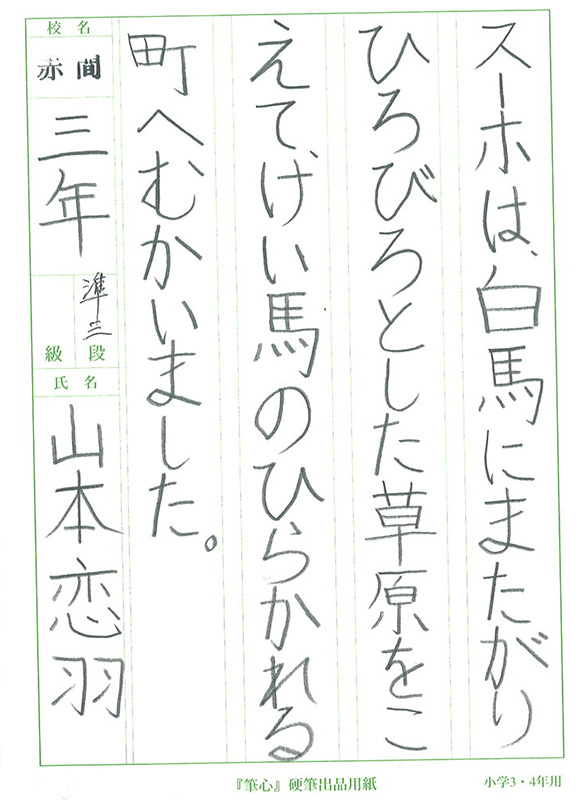 スーホは、白馬にまたがり
ひろびろとした草原をこ
えて、けい馬のひらかれる
町へむかいました。
校名
赤間
三年
準三
級 段
氏名
山本恋羽
『筆心』硬筆出品用紙
小学3・4年用